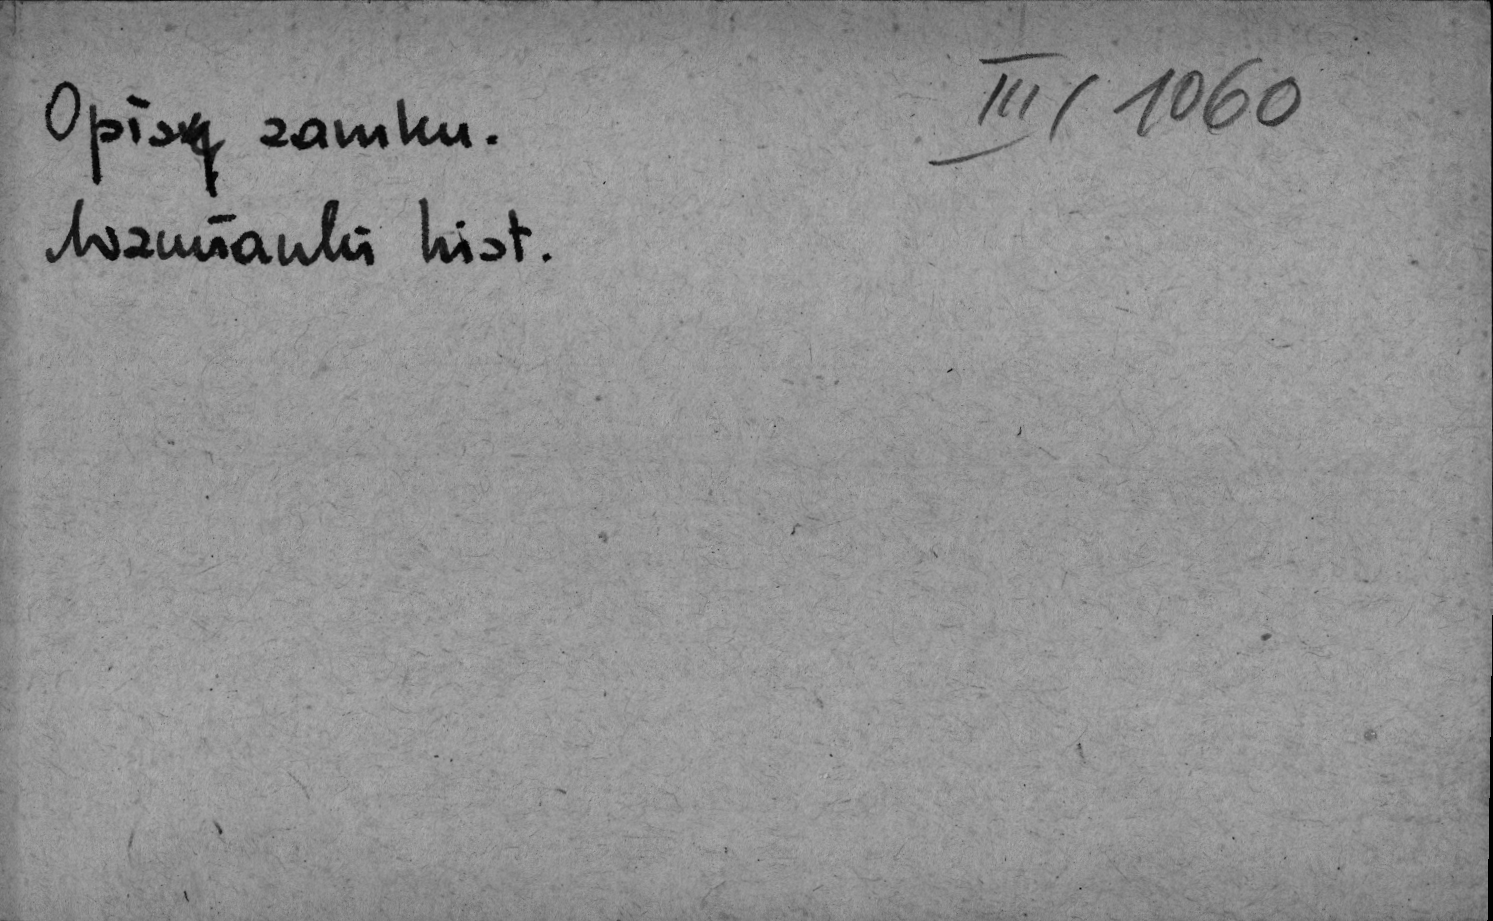 Opisy zamku.
III/1060
Wzmianki hist.